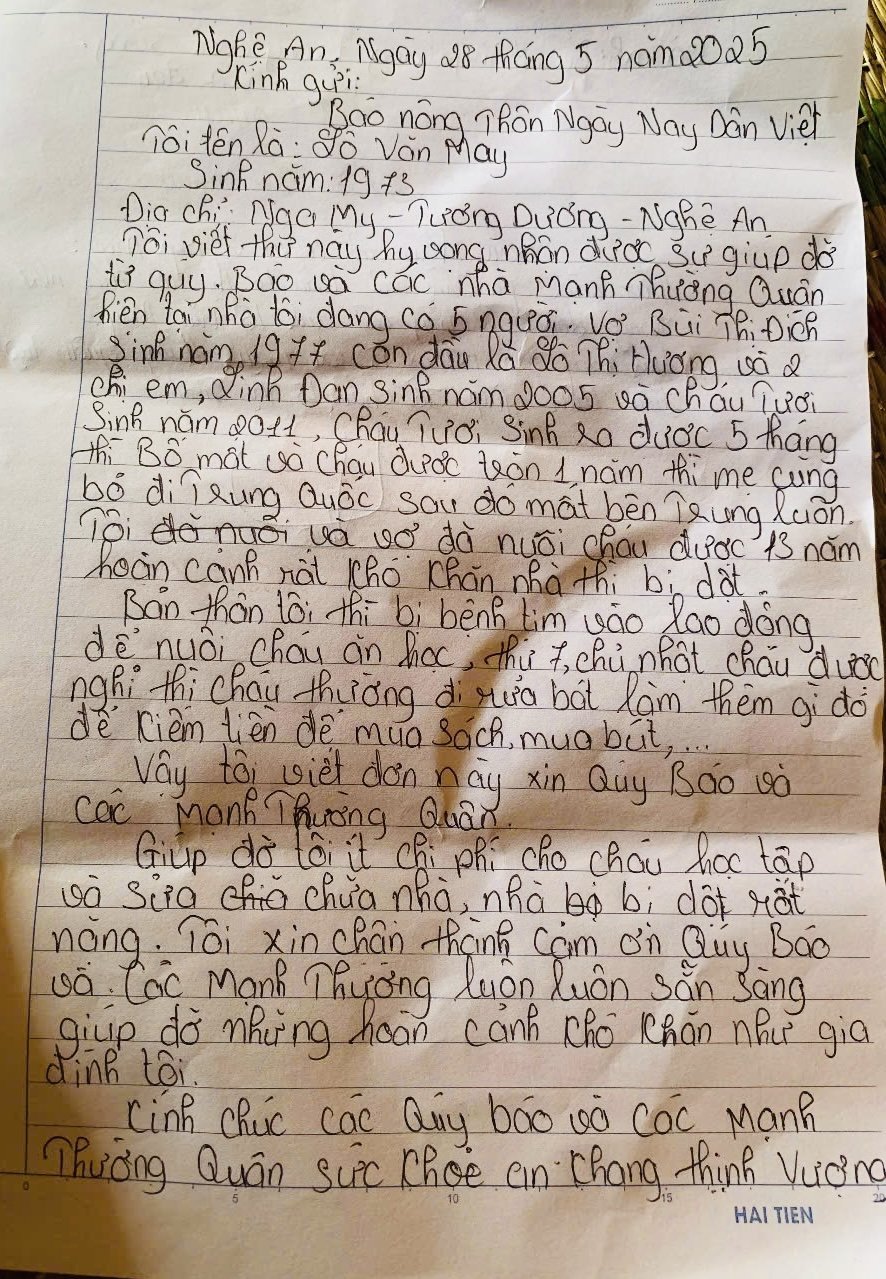 Nghệ An, Ngày 28 tháng 5 năm 2025
Kính gửi:
Báo nông Thôn Ngày Nay Dân Việt
Tôi tên là: Lô Văn May
Sinh năm: 1973
Địa chỉ: Nga My - Tương Dương - Nghệ An
Tôi viết thư này hy vong nhân được sự giúp đỡ
từ quy. Báo và các nhà Mạnh Thường Quân
hiên tại nhà tôi đang có 5 người. Vợ Bùi Thị Đích
Sinh năm 1977 con dâu là Lô Thị Hương và 2
chị em, Linh Đan sinh năm 2005 và cháu Tươi
Sinh năm 2011, Cháu Tươi Sinh ra được 5 tháng
thì Bố mất và cháu được tròn 1 năm thì mẹ cũng
bỏ đi Trung Quốc sau đó mất bên Trung luôn.
Tôi đã nuôi và vợ đã nuôi cháu được 13 năm
hoàn cảnh rất khó khăn nhà thì bị dột.
Bản thân tôi thì bị bệnh tim vào lao động
để nuôi cháu ăn học, thứ 7, chủ nhật cháu được
nghỉ thì cháu thường đi rửa bát làm thêm gì đó
để kiếm tiền để mua sách, mua bút,...
Vậy tôi viết đơn này xin Quý Báo và
các Mạnh Thường Quân.
Giúp đỡ tôi ít chi phí cho cháu học tập
và sửa chữa nhà, nhà bị dột rất
nặng. Tôi xin chân thành cảm ơn Qúy Báo
và. Các Mạnh Thường luôn luôn sẵn sàng
giúp đỡ những hoàn cảnh khó khăn như gia
đình tôi.
Kính chúc các Qúy báo và các Mạnh
Thường Quân sức khoẻ an khang thịnh Vượng
0 5 10 15 20
HAI TIEN